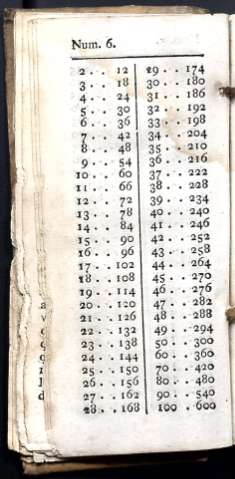 Num. 6.
2 . . 12
3 . . 18
4 . . 24
5 . . 30
6 . . 36
7 . . 42
8 . . 48
9 . . 54
10 . . 60
11 . . 66
12 . . 72
13 . . 78
14 . . 84
15 . . 90
16 . . 96
17 . . 102
18 . . 108
19 . . 114
20 . . 120
21 . . 126
22 . . 132
23 . . 138
24 . . 144
25 . . 150
26 . . 156
27 . . 162
28 . . 168
29 . . 174
30 . . 180
31 . . 186
32 . . 192
33 . . 198
34 . . 204
35 . . 210
36 . . 216
37 . . 222
38 . . 228
39 . . 234
40 . . 240
41 . . 246
42 . . 252
43 . . 258
44 . . 264
45 . . 270
46 . . 276
47 . . 282
48 . . 288
49 . . 294
50 . . 300
60 . . 360
70 . . 420
80 . . 480
90 . . 540
100 . . 600